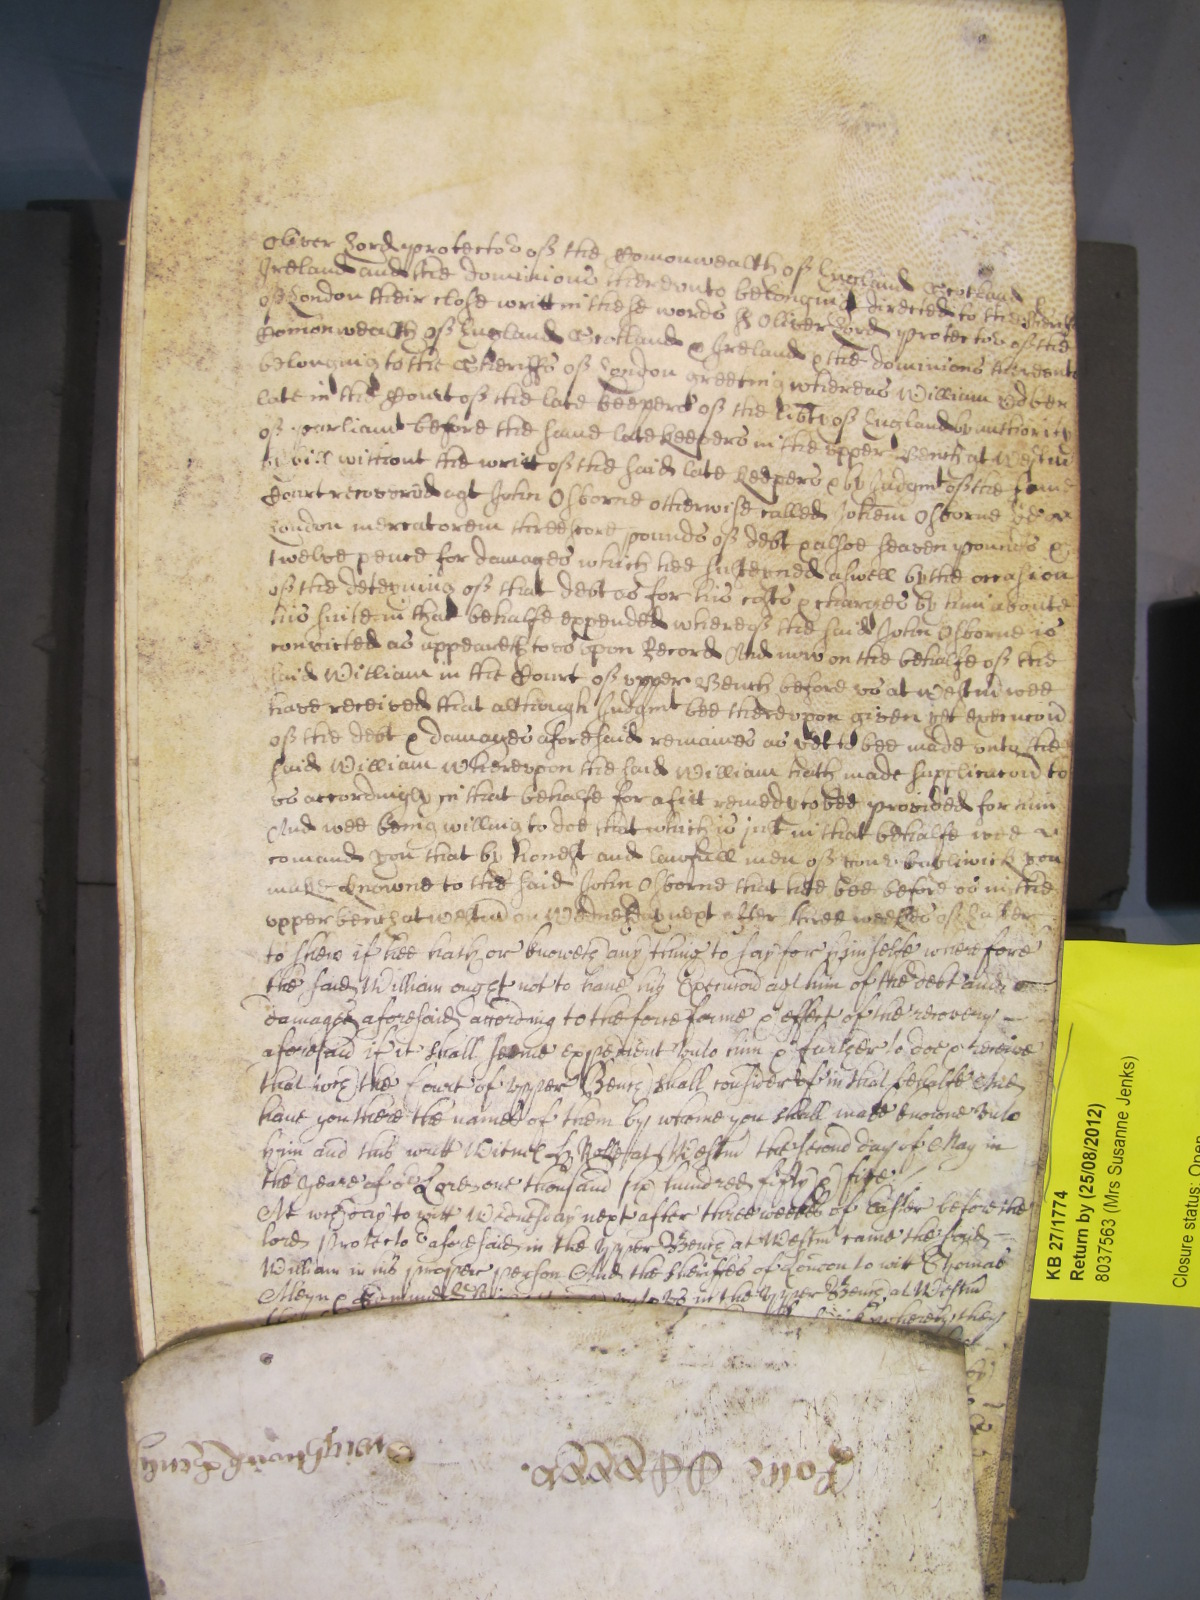 Oliver Lord Protector of the Comonwealth of England Scotland &
Ireland and the dominions thereunto belonging directed to the Sheriffs
of London their close writt in these words ss Oliver Lord Protector of the
Comonwealth of England Scotland & Ireland & the dominions thereunto
belonging to the Sheriffs of London greeting whereas William
late in the Court of the late keepers of the libty of England by authority
of parliamt before the same late keepers in the upper Bench at Westm
by bill without the writt of the said late keepers & by Judgmt of the same
Court recovered agt John Osborne otherwise called Johem Osborne de
London mercatorem threescore pounds of debt & alsoe seaven pounds &
twelve pence for damages which hee susteyned aswell by the occasion
of the deteyning of that debt as for his costs & charges by him aboute
his suite in that behalfe expended whereof the said John Osborne is
convicted as appeareth to us upon Record And now on the behalfe of the
said William in the Court of upper Bench before us at Westm wee
have received that although Judgmt bee thereupon given yet execucon
of the debt & damages aforesaid remaines as yet to bee made unto the
said William Whereupon the said William hath made supplicacon to
us accordingly in that behalfe for a fitt remedy to bee provided for him
And wee being willing to doe that which is just in that behalfe wee
comand you that by honest and lawfull men of your bayliwick you
make knowne to the said John Osborne that hee bee before us in the
upper bench at westm on Wednesday next after three weekes of Easter
to shew if hee hath or knoweth any thing to say for himselfe wherefore
the said William ought not to have his Execucon agt him of the debt and
damages aforesaid according to the force forme & effect of the recovery
aforesaid if it shall seeme expedient unto him & further to doe & receive
that wch the Court of upper Bench shall consider of in that behalfe And
have you there the names of them by whome you shall make knowne unto
him and this writt Witnes H Rolle at Westm the second day of May in
the yeare of or Lord one thousand six hundred fifty & five
At wch day to witt Wednesday next after three weekes of Easter before the
lord Protector aforesaid in the Upper Bench at Westm came the said
William in his proper person And the Sheriffes of London to witt Thomas
Aleyn & in the Upper Bench at Westm
whereby they
KB 27/1774
Return by (25/08/2012)
8037563 (Mrs Susanne Jenks)
Closure status: Open